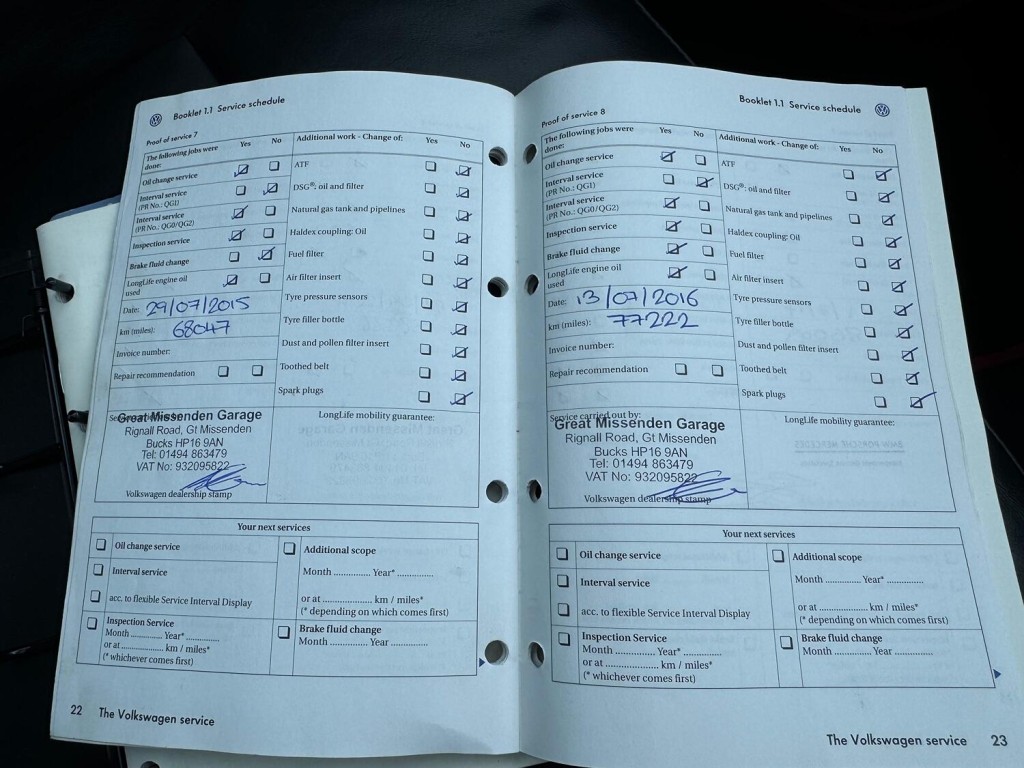 Booklet 1.1 Service schedule
Proof of service 7
The following jobs were done: Yes No
Oil change service
Interval service
(PR No.: QG1)
Interval service
(PR No.: QG0/QG2)
Inspection service
Brake fluid change
LongLife engine oil
used
Date: 29/07/2015
km (miles): 68047
Invoice number:
Repair recommendation
Additional work - Change of: Yes No
ATF
DSG®: oil and filter
Natural gas tank and pipelines
Haldex coupling: Oil
Fuel filter
Air filter insert
Tyre pressure sensors
Tyre filler bottle
Dust and pollen filter insert
Toothed belt
Spark plugs
Great Missenden Garage
Rignall Road, Gt Missenden
Bucks HP16 9AN
Tel: 01494 863479
VAT No: 932095822
Volkswagen dealership stamp
LongLife mobility guarantee:
Your next services
Oil change service
Interval service
acc. to flexible Service Interval Display
Inspection Service
Month ........... Year* ...........
or at .................... km / miles*
(* whichever comes first)
Additional scope
Month ............... Year* ...............
or at .................... km / miles*
(* depending on which comes first)
Brake fluid change
Month ............ Year ...............
22 The Volkswagen service
Booklet 1.1 Service schedule
Proof of service 8
The following jobs were
done: Yes No
Oil change service
Interval service
(PR No.: QG1)
Interval service
(PR No.: QG0/QG2)
Inspection service
Brake fluid change
LongLife engine oil
used
Date: 13/07/2016
km (miles): 77222
Invoice number:
Repair recommendation
Additional work - Change of: Yes No
ATF
DSG®: oil and filter
Natural gas tank and pipelines
Haldex coupling: Oil
Fuel filter
Air filter insert
Tyre pressure sensors
Tyre filler bottle
Dust and pollen filter insert
Toothed belt
Spark plugs
Service carried out by:
Great Missenden Garage
Rignall Road, Gt Missenden
Bucks HP16 9AN
Tel: 01494 863479
VAT No: 932095822
Volkswagen dealership stamp
LongLife mobility guarantee:
Your next services
Oil change service
Interval service
acc. to flexible Service Interval Display
Inspection Service
Month ............ Year* ............
or at .................... km / miles*
(* whichever comes first)
Additional scope
Month ............. Year* .............
or at .................... km / miles*
(* depending on which comes first)
Brake fluid change
Month ............ Year ..............
The Volkswagen service 23